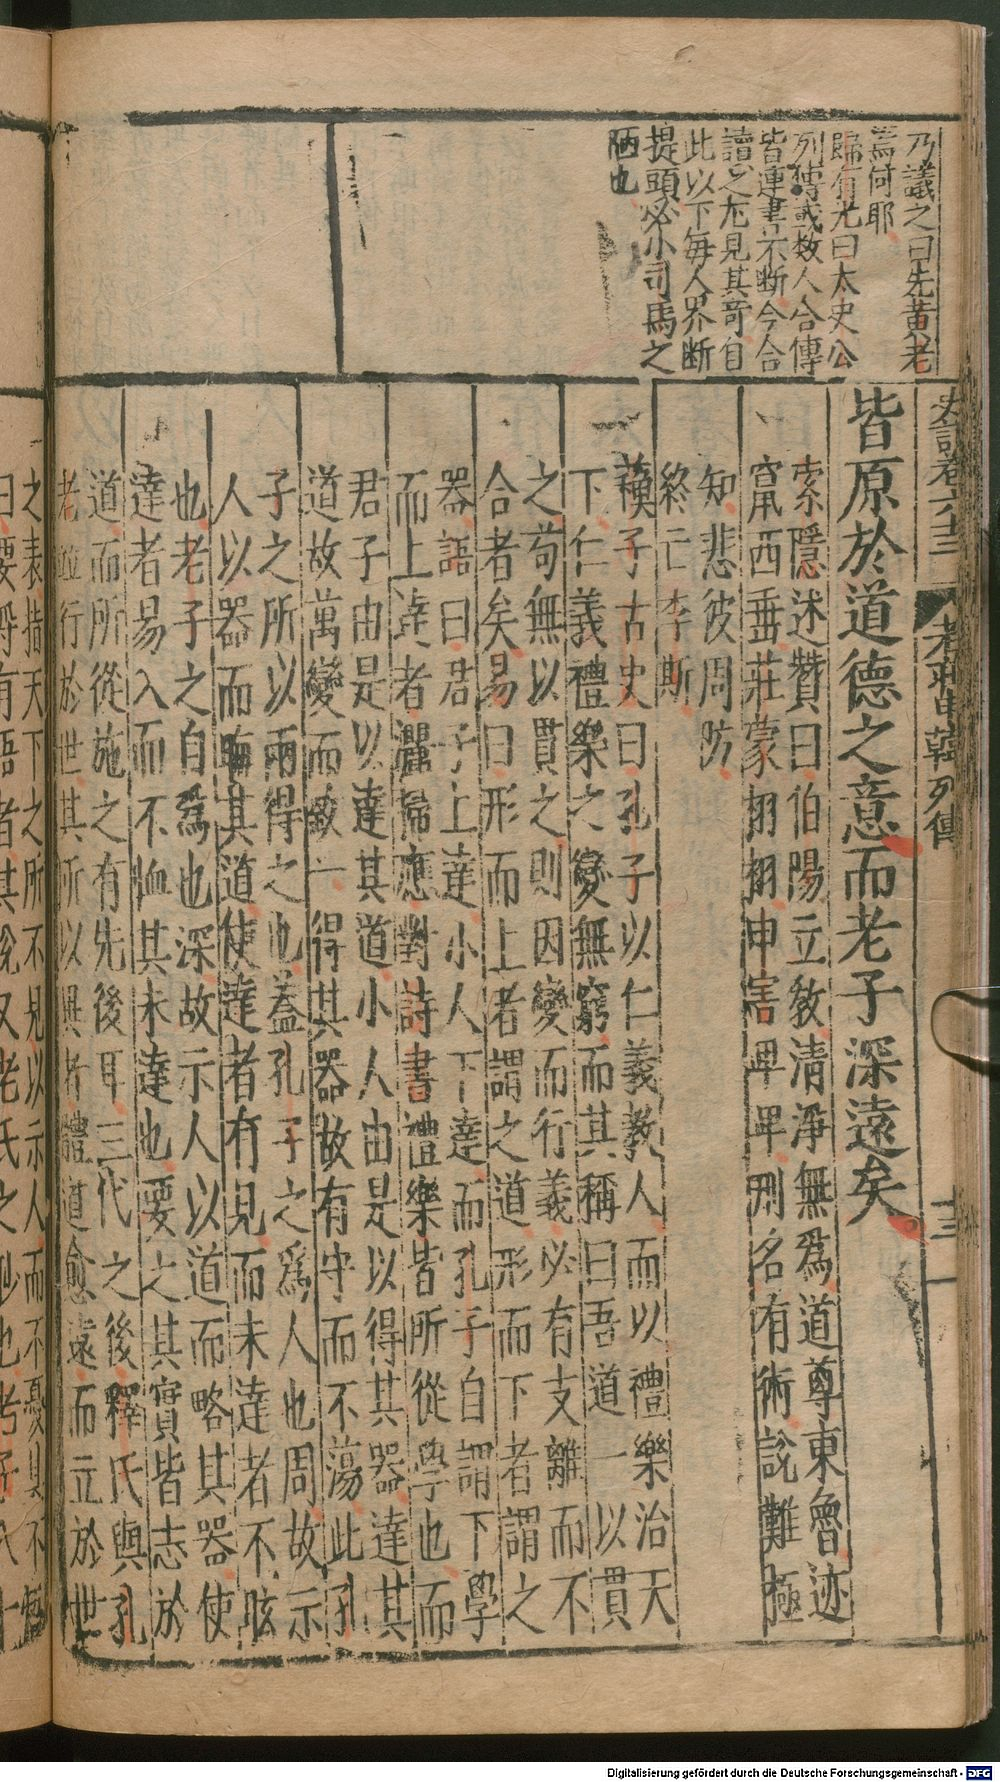 乃議之曰先黃老
爲何耶
歸有光曰太史公
列傳或數人合傳
皆連書不斷今合
讀之尤見其奇自
此以下每人界斷
提頭必小司馬之
陋也
史記卷六十三
老莊申韓列傳
十三
皆原於道德之意而老子深遠矣
索隱述贊曰伯陽立敎清淨無爲道尊東魯迹
竄西垂莊蒙栩栩申害卑卑刑名有術說難極
知悲彼周防
終亡李斯
蘓子古史曰孔子以仁義敎人而以禮樂治天
下仁義禮樂之變無窮而其稱曰吾道一以貫
之苟無以貫之則因變而行義必有支離而不
合者矣易曰形而上者謂之道形而下者謂之
器語曰君子上達小人下達而孔子自謂下學
而上達者灑掃應對詩書禮樂皆所從學也而
君子由是以達其道小人由是以得其器達其
道故萬變而致一得其器故有守而不蕩此孔
子之所以兩得之也蓋孔子之爲人也周故示
人以器而晦其道使達者有見而未達者不眩
也老子之自爲也深故示人以道而略其器使
達者易入而不恤其未達也要之其實皆志於
道而所從施之有先後耳三代之後釋氏與孔
老並行於世其所以與者體道愈遠而立於世
之表措天下之所不見以示人而不憂其不
Digitalisierung gefördert durch die Deutsche Forschungsgemeinschaft - DFG